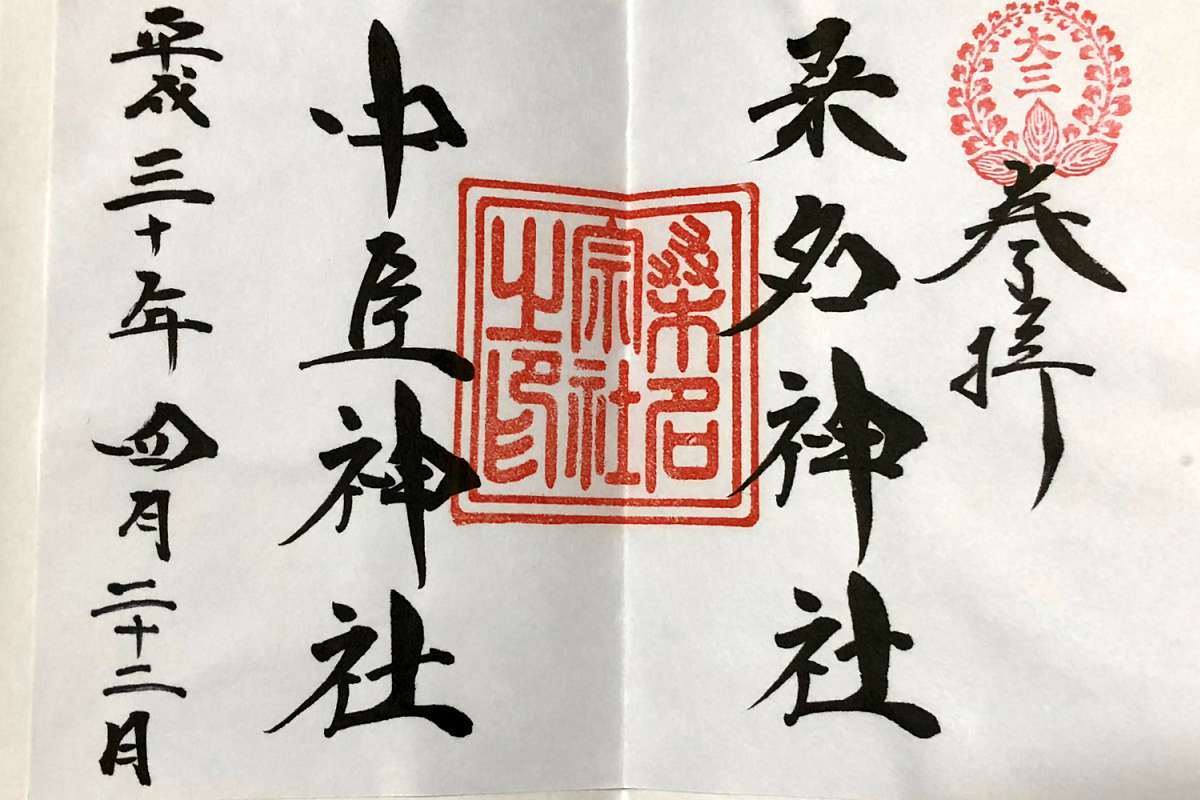 大三
奉拝
桑名神社
桑名
宗社
之印
中臣神社
平成三十年四月二十二日